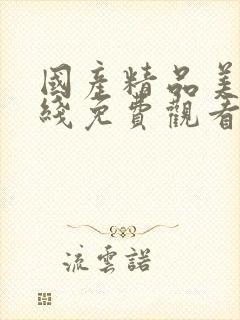 國產精品美
綫免費觀看
流雲諾